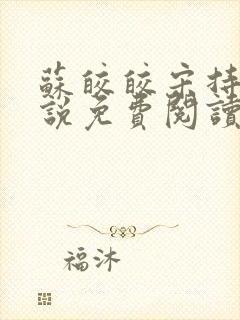 蘇皎皎宋持
說免費閱讀
福沐